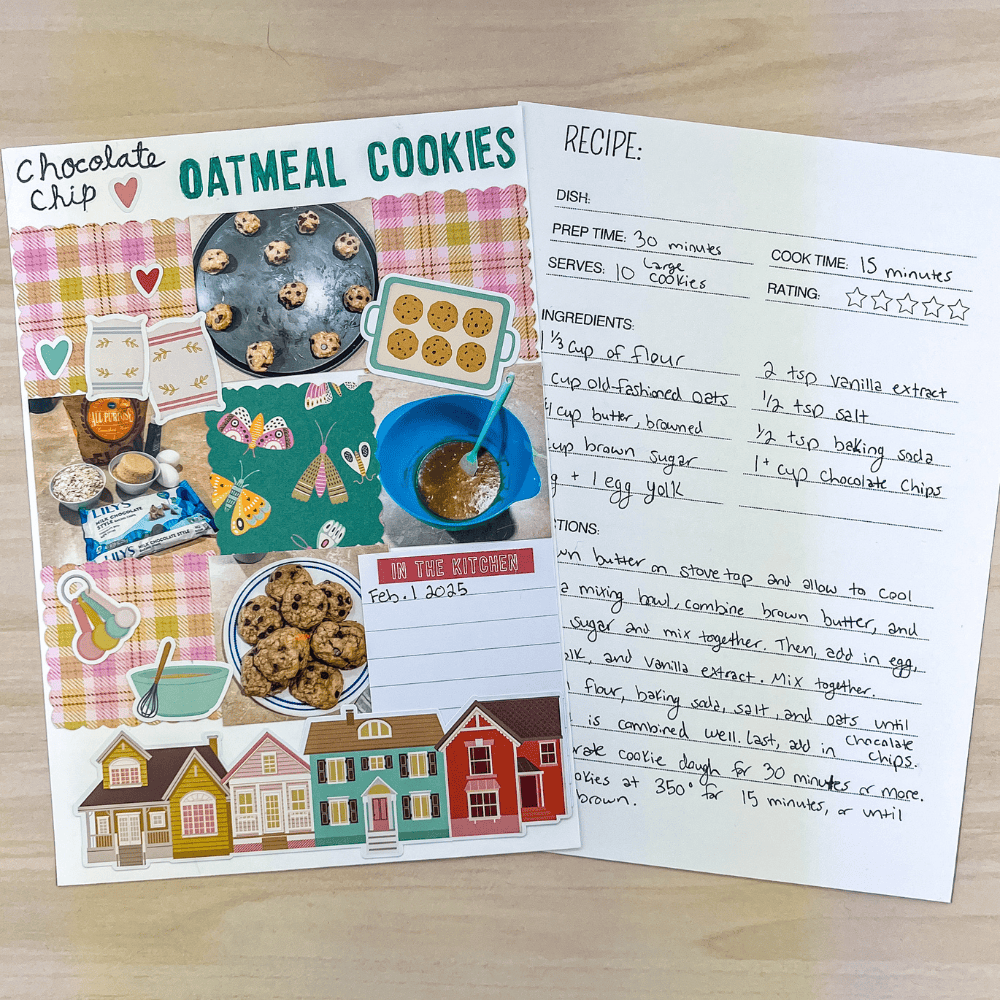 Chocolate
Chip
OATMEAL COOKIES
ALL PURPOSE
LILY'S
MILK CHOCOLATE
STYLE
LILY'S MILK CHOCOLATE STYLE
IN THE KITCHEN
Feb. 1 2025
RECIPE:
DISH:
PREP TIME: 30 minutes
COOK TIME: 15 minutes
SERVES: 10 large cookies
RATING:
INGREDIENTS:
1 1/3 cup of flour
cup old-fashioned oats
cup butter, browned
cup brown sugar
+ 1 egg yolk
2 tsp vanilla extract
1/2 tsp salt
1/2 tsp baking soda
1+ cup chocolate chips
TIONS:
wn butter on stove top and allow to cool
mixing bowl, combine brown butter, and
sugar and mix together. Then, add in egg,
lk, and vanilla extract. Mix together.
flour, baking soda, salt, and oats until
is combined well. Last, add in chocolate chips.
rate cookie dough for 30 minutes or more.
okies at 350° for 15 minutes, or until
brown.